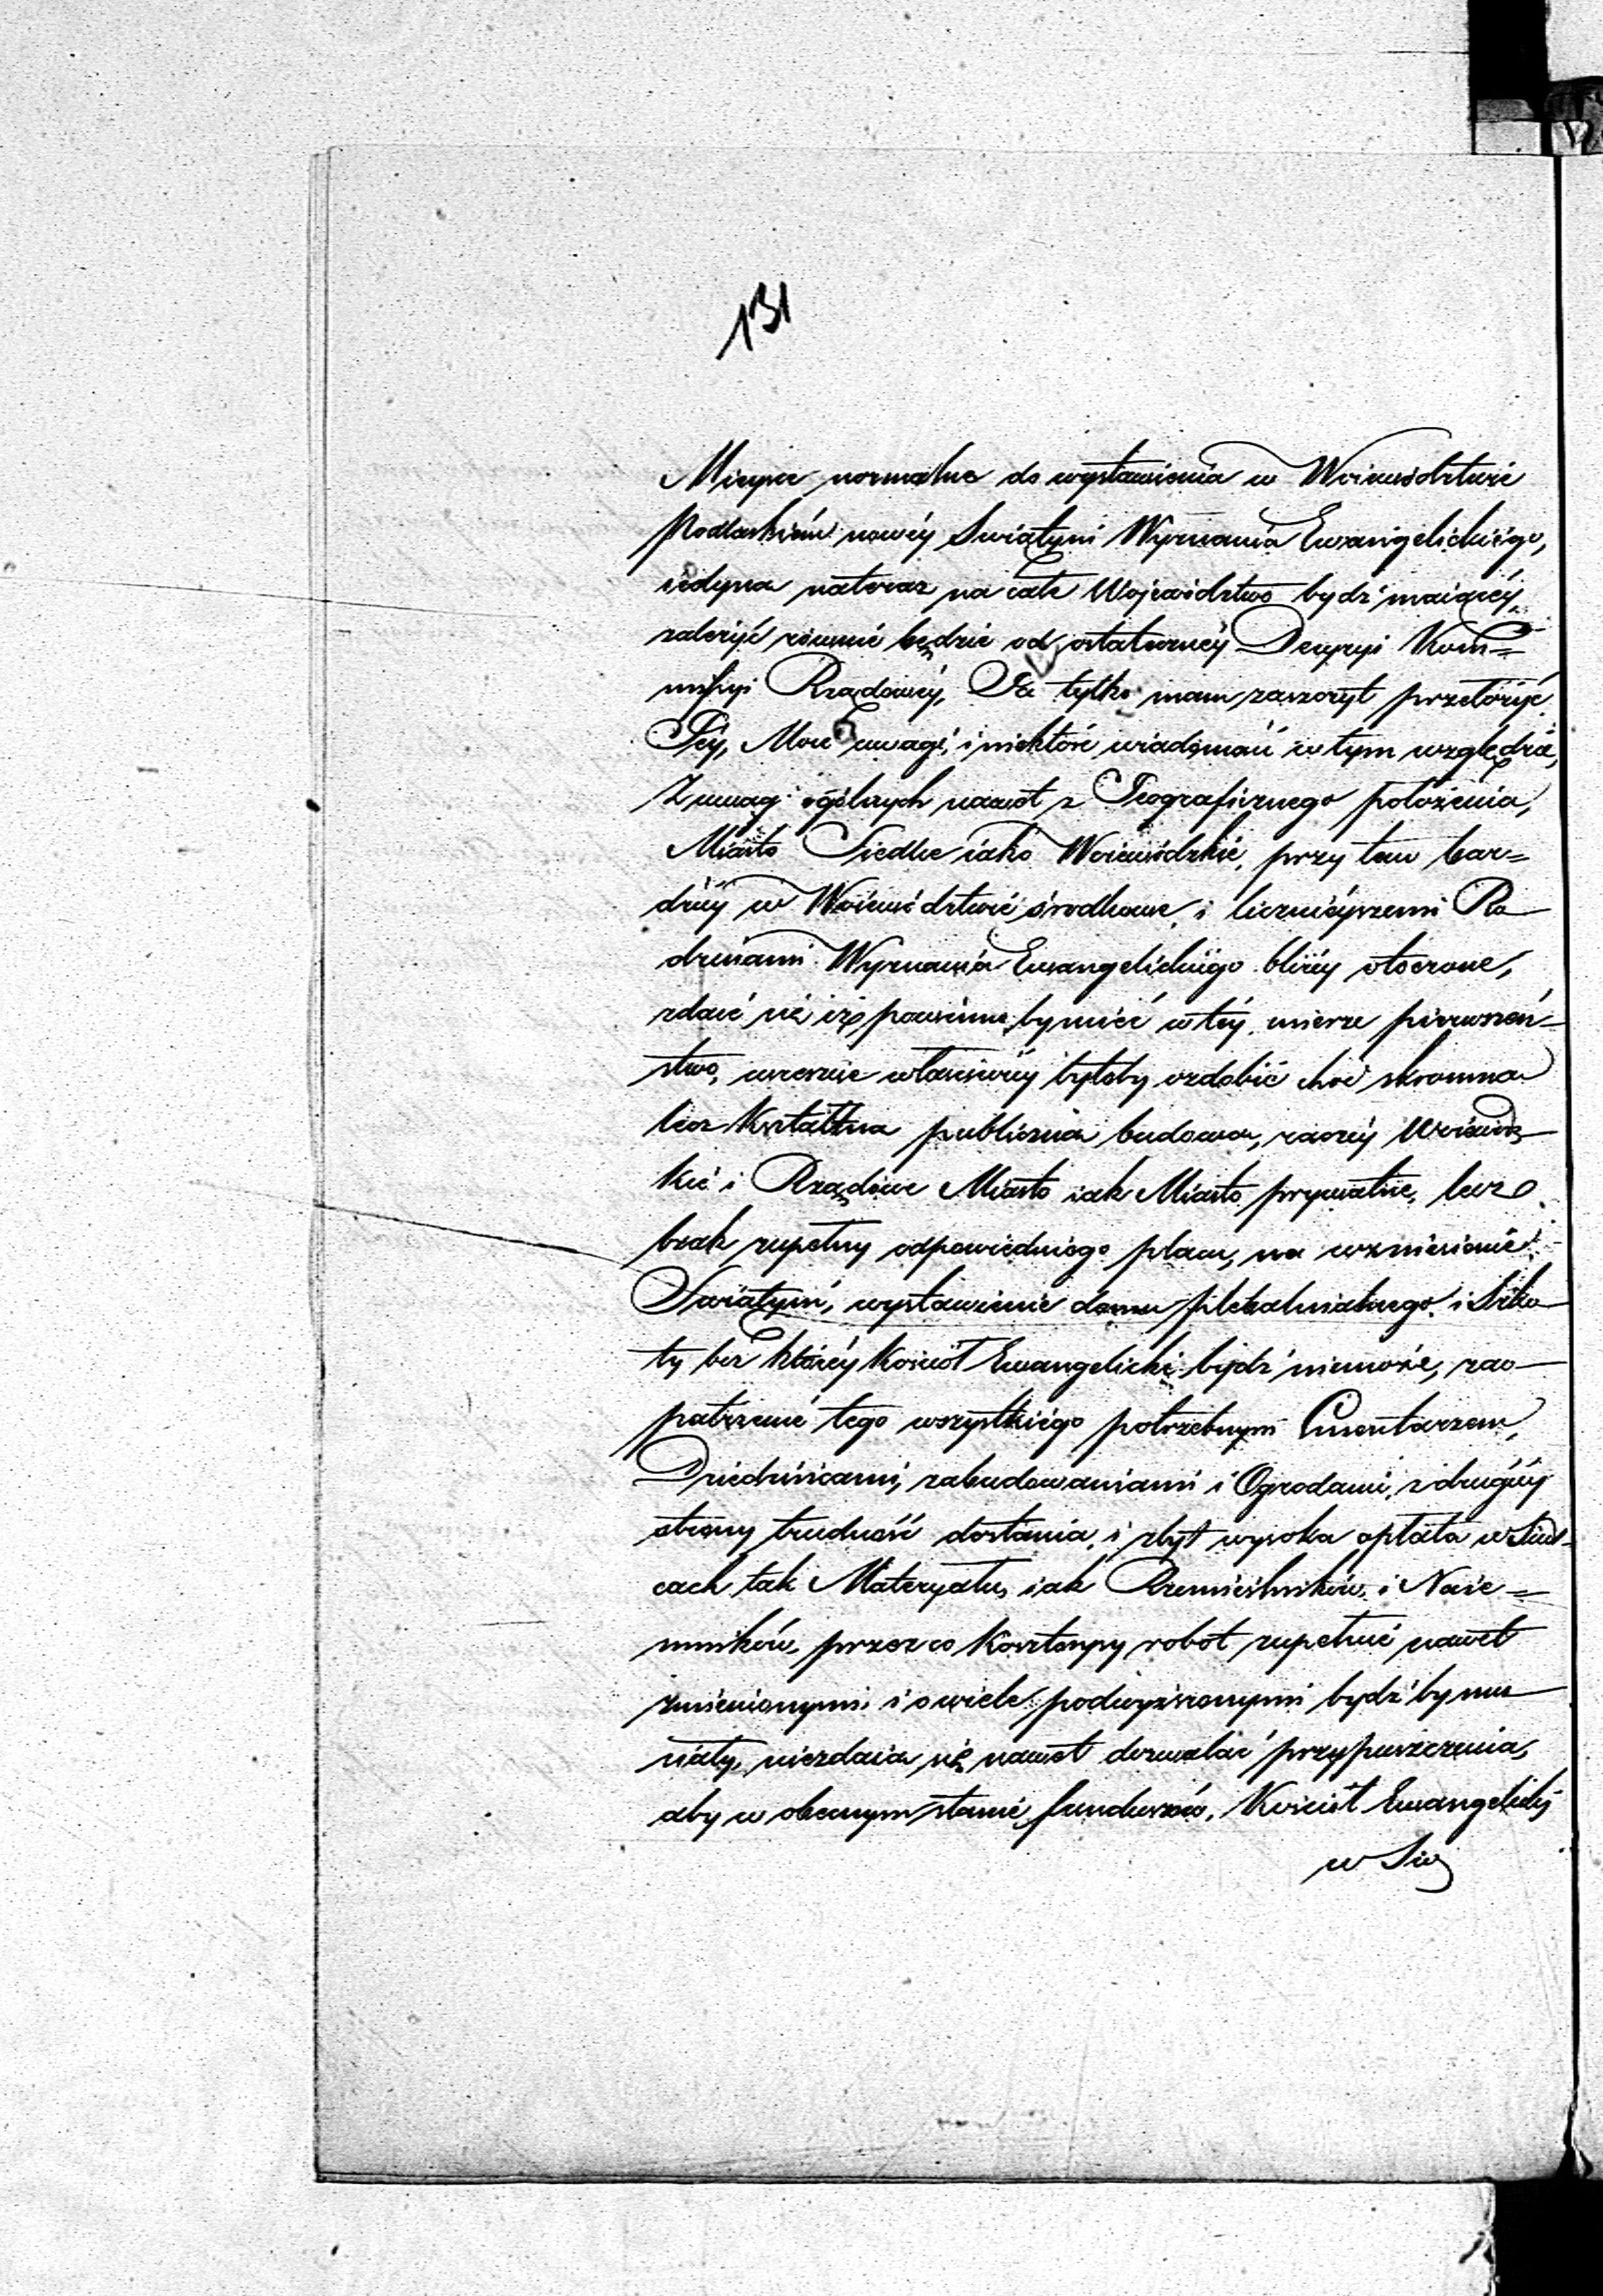 131
Mieysce normalne do wystawienia w Woiewództwie
Podlaskiém nowéy Swiątyni Wyznania Ewangelickiégo,
iedyna nateraz na całe Wojewodztwo bydź maiącéy
zależyć równie będzie od ostateczney Decyzyi Kom=
missyi Rządowéy, Ja tylko mam zaszczyt przełożyć
Jéy, Moie uwagi, i niektóre wiadomości w tym względzie,
Z uwag ogólnych nawet z Jeograficznego położenia,
Miasto Siedlce iako Woiewódzkie, przy tem bar=
dziéy w Woiewództwie środkowe, i licznieyszemi Ro
dzinami Wyznania Ewangelickiégo bliżéy otoczone,
zdaié się iż powinno by mieć w téy mierze pierwszeń-
stwo, wreszcie właściwiéy byłoby ozdobić choć skromna
lecz kształtna publiczna budowa, raczéy Woiewódz
kié i Rządowe Miasto iak Miasto prywatne, lecz
brak zupełny odpowiedniego placu, na wzniesienie
Swiątyni, wystawienie domu plebalnialnego i Szko
ty bez któréy Kościół Ewangelicki bydź niemoże, zao
patrzenié tego wszystkiégo potrzebnym Cmentarzem,
Dziedzińcami, zabudowaniami i Ogrodami, z drugiéy
strony trudność dostania, i zbyt wysoka opłata w Siedl-
cach tak Materyału, iak Rzemieślników, i Naie=
mników, przez co Kosztorysy robot zupełnié nawet
zmienionymi i o wiele podwyższonymi bydź by mu
siały, niezdaia się nawet dozwalać przypuszczenia,
aby w obecnym stanié funduszów, Kościół Ewangelicky
w Sie